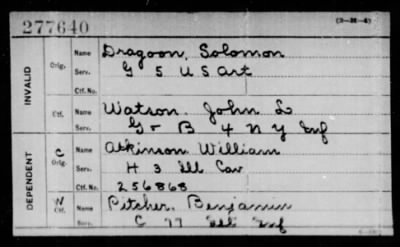 277640
(3-M-4)
INVALID
Orig.
Name Dragoon, Solomon
Serv. G 5 U S Art
Ctf. No.
Ctf.
Name Watson, John L
Serv. G - B 4 N Y Inf
DEPENDENT
C
Orig.
Name Atkinson William
Serv. H 3 Ill Cav
Ctf. No. 256868
W
Ctf.
Name Pitcher, Benjamin
Serv. C 77 Ill Inf